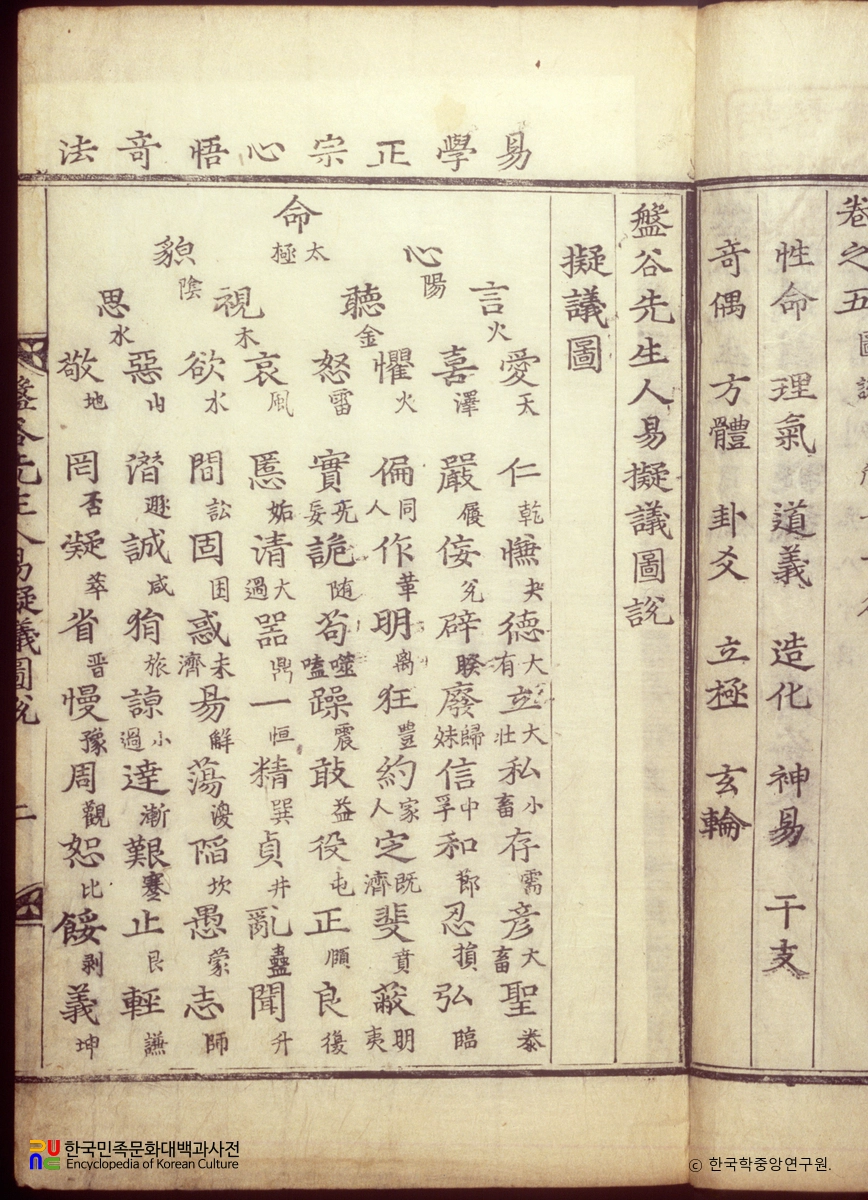 卷之五
性命 理氣 道義 造化 神易 干支
奇偶 方體 卦爻 立極 玄輪
易學正宗心悟奇法
盤谷先生人易擬議圖說
擬議圖
命 太極
心 陽
貌 陰
言 火
聽 金
視 木
思 水
愛天 仁乾 憮夬 德大有 立大壯 私小畜 存需 彦大畜 聖泰
喜澤 嚴履 侫兌 辟睽 廢歸妹 信中孚 和節 忍損 弘臨
懼火 偏同人 作革 明离 狂豊 約家人 定既濟 斐賁 蔽明夷
怒雷 實无妄 詭随 苟噬嗑 躁震 敢益 役屯 正頤 良復
哀風 慝姤 清大過 器鼎 一恒 精巽 貞井 亂蠱 聞升
欲水 間訟 固困 惑未濟 易解 蕩渙 陷坎 愚蒙 志師
惡山 潛遯 誠咸 狷旅 諒小過 達漸 艱蹇 止艮 輕謙
敬地 罔否 凝萃 省晋 慢豫 周觀 恕比 餒剝 義坤
盤谷先生人易擬議圖說 二
한국민족문화대백과사전
Encyclopedia of Korean Culture
© 한국학중앙연구원.